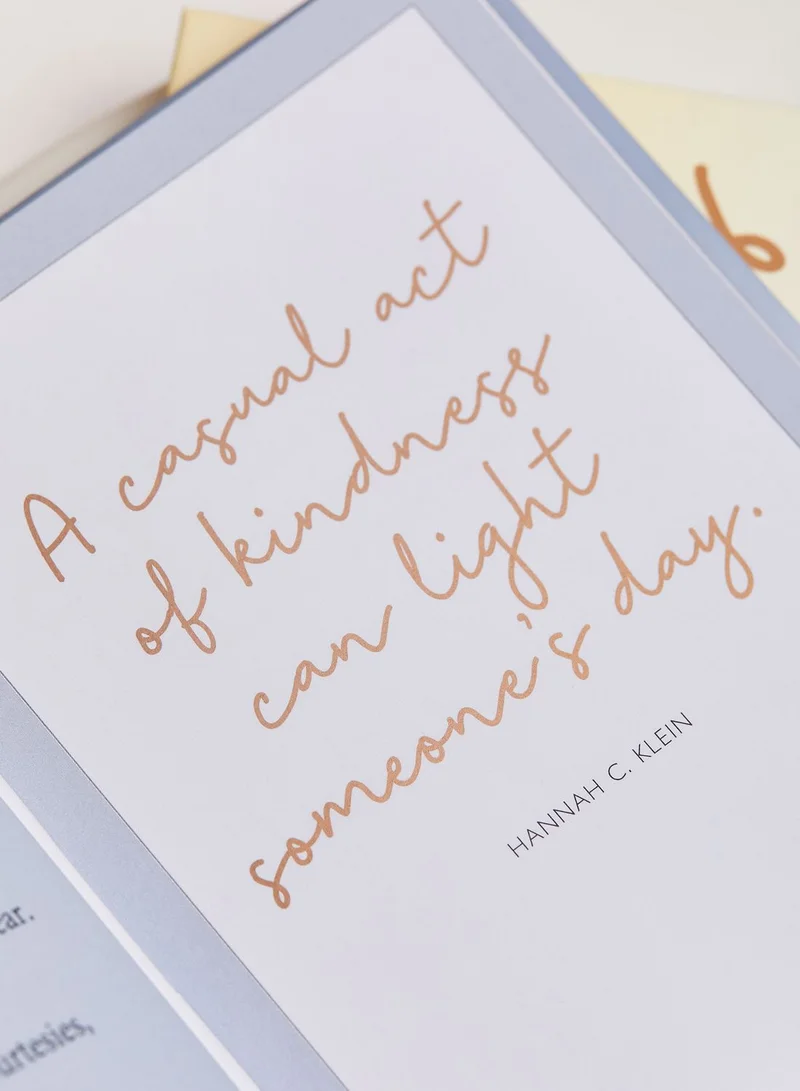 A casual act
of kindness
can light
someone's day.
HANNAH C. KLEIN